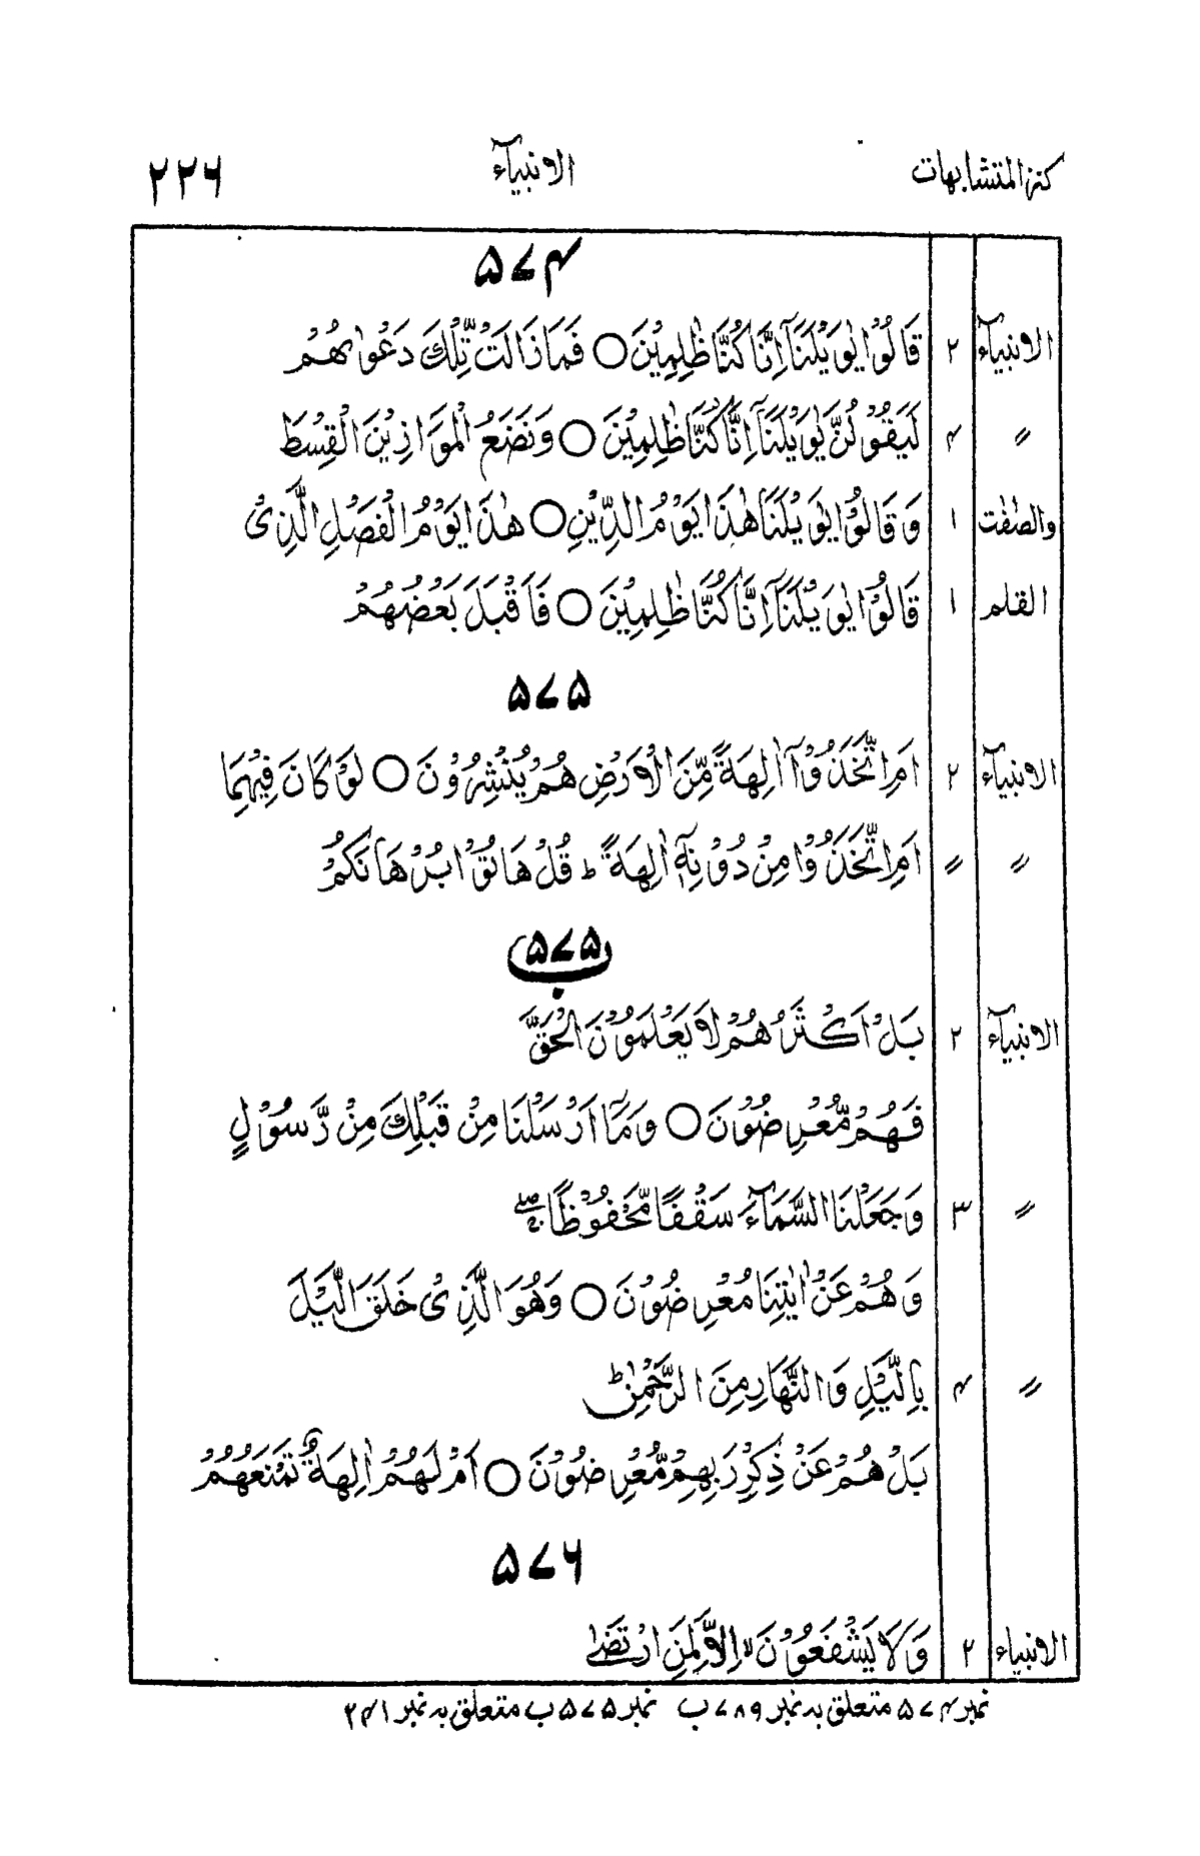 كنز المتشابهات الانبیآء ۲۲۶
۵۷۴
الانبیآء ۲ قَالُوْا یٰوَیْلَنَاۤ اِنَّا كُنَّا ظٰلِمِیْنَ ○ فَمَا زَالَتْ تِّلْكَ دَعْوٰىهُمْ
〃 ۴ لَیَقُوْلُنَّ یٰوَیْلَنَاۤ اِنَّا كُنَّا ظٰلِمِیْنَ ○ وَنَضَعُ الْمَوَازِیْنَ الْقِسْطَ
والصّٰفّٰت ۱ وَقَالُوْا یٰوَیْلَنَا هٰذَا یَوْمُ الدِّیْنِ ○ هٰذَا یَوْمُ الْفَصْلِ الَّذِیْ
القلم ۱ قَالُوْا یٰوَیْلَنَاۤ اِنَّا كُنَّا ظٰلِمِیْنَ ○ فَاَقْبَلَ بَعْضُهُمْ
۵۷۵
الانبیآء ۲ اَمِ اتَّخَذُوْۤا اٰلِهَةً مِّنَ الْاَرْضِ هُمْ یُنْشِرُوْنَ ○ لَوْ كَانَ فِیْهِمَا
〃 〃 اَمِ اتَّخَذُوْا مِنْ دُوْنِهٖۤ اٰلِهَةً ؕ قُلْ هَاتُوْا بُرْهَانَكُمْ
۵۷۵ ب
الانبیآء ۲ بَلْ اَكْثَرُهُمْ لَا یَعْلَمُوْنَ الْحَقَّ
فَهُمْ مُّعْرِضُوْنَ ○ وَمَاۤ اَرْسَلْنَا مِنْ قَبْلِكَ مِنْ رَّسُوْلٍ
〃 ۳ وَجَعَلْنَا السَّمَآءَ سَقْفًا مَّحْفُوْظًا ۚۖ
وَهُمْ عَنْ اٰیٰتِنَا مُعْرِضُوْنَ ○ وَهُوَ الَّذِیْ خَلَقَ الَّیْلَ
〃 ۴ بِالَّیْلِ وَالنَّهَارِ مِنَ الرَّحْمٰنِ ؕ
بَلْ هُمْ عَنْ ذِكْرِ رَبِّهِمْ مُّعْرِضُوْنَ ○ اَمْ لَهُمْ اٰلِهَةٌ تَمْنَعُهُمْ
۵۷۶
الانبیاء ۲ وَلَا یَشْفَعُوْنَ ۙ اِلَّا لِمَنِ ارْتَضٰى
نمبر ۵۷۴ متعلق بہ نمبر ۷۸۹ ب نمبر ۵۷۵ ب متعلق بہ نمبر ۳۴۱